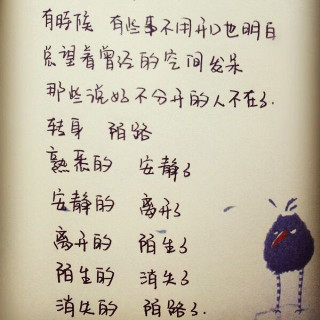 有时候 有些事不用开口也明白
总望着曾经的空间发呆
那些说好不分开的人不在了.
转身 陌路
熟悉的 安静了
安静的 离开了
离开的 陌生了
陌生的 消失了
消失的 陌路了.